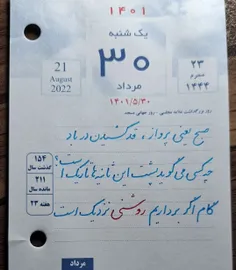 ۱۴۰۱
یک شنبه
21
August
2022
۳۰
۲۳
محرم
۱۴۴۴
مرداد
۱۴۰۱/۵/۳۰
روز بزرگداشت علامه مجلسی - روز جهانی مسجد
صبح یعنی پرواز، قد کشیدن در باد
چه کسی می گوید پشت این ثانیه ها تاریک است؟
گام اگر برداریم روشنی نزدیک است
۱۵۴
گذشت سال
۲۱۱
مانده سال
هفته ۲۳
مرداد